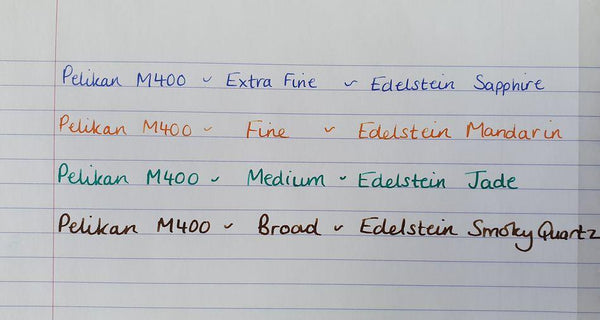 Pelikan M400 ~ Extra Fine ~ Edelstein Sapphire
Pelikan M400 ~ Fine ~ Edelstein Mandarin
Pelikan M400 ~ Medium ~ Edelstein Jade
Pelikan M400 ~ Broad ~ Edelstein Smoky Quartz